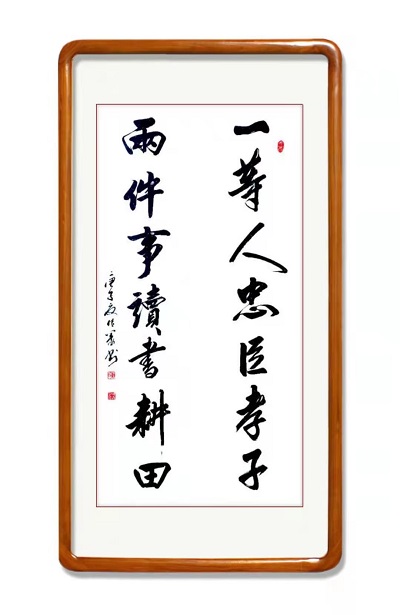 一等人忠臣孝子
兩件事讀書耕田